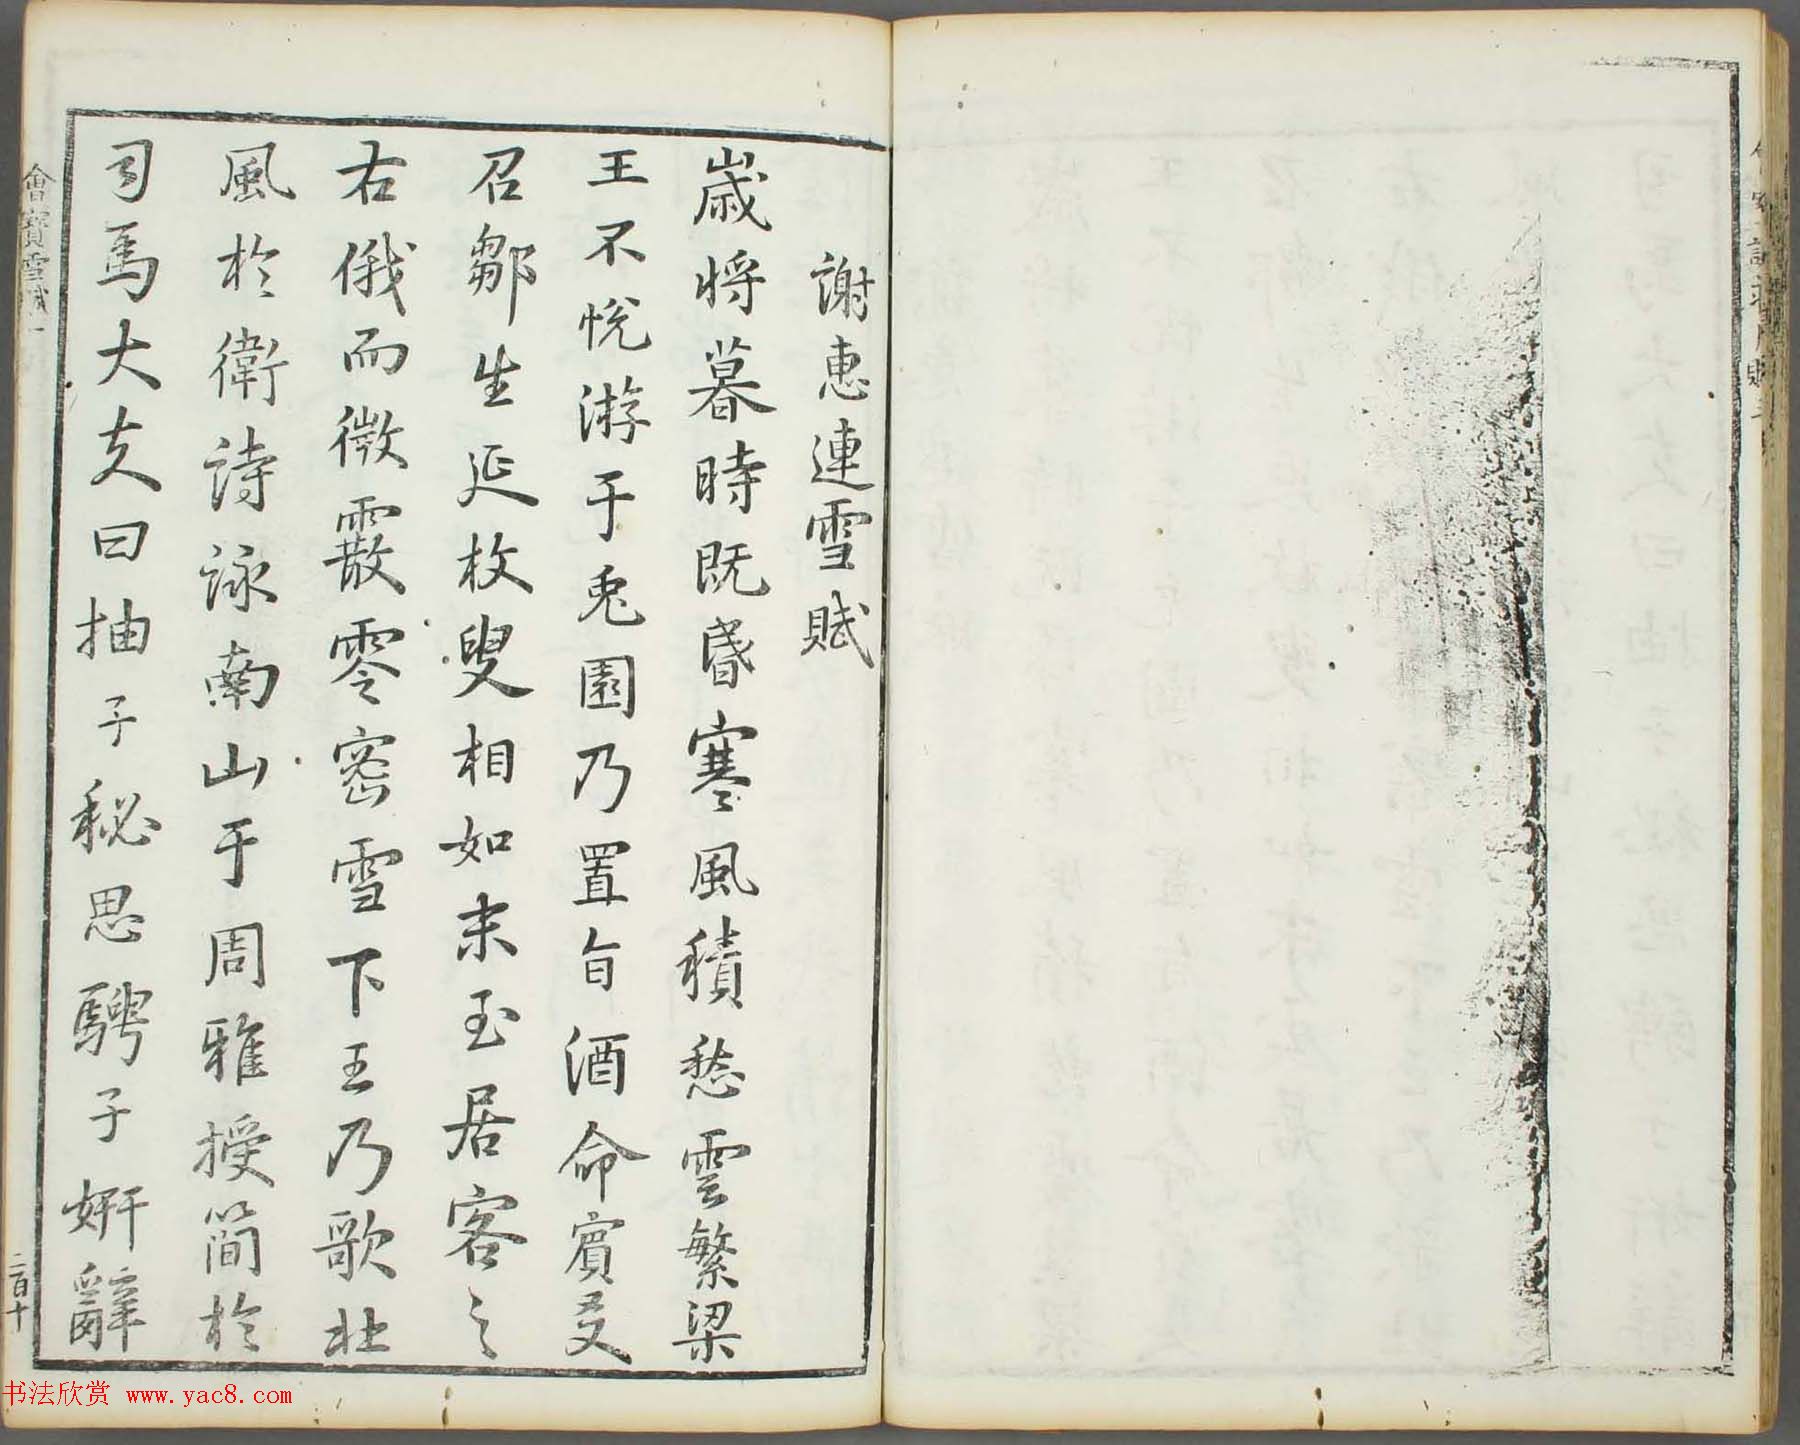 謝惠連雪賦
歲將暮時既昬寒風積愁雲繁梁
王不悅游于兔園乃置旨酒命賓友
召鄒生延枚叟相如末至居客之
右俄而微霰零密雪下王乃歌北
風於衛詩詠南山于周雅授簡於
司馬大夫曰抽子秘思騁子妍辭
會寶雪賦一
二百十
书法欣赏 www.yac8.com